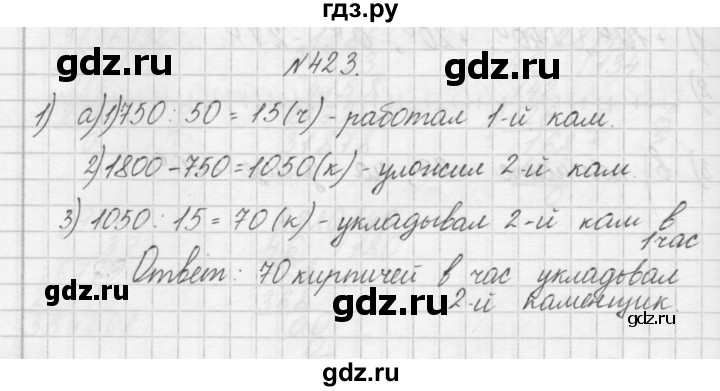 гдз.ру
gdz.ru gdz.ru
№423.
1) а)1)750 : 50 = 15(ч) - работал 1-й кам.
2)1800 - 750 = 1050(к) - уложил 2-й кам.
3) 1050 : 15 = 70 (к) - укладывал 2-й кам в 1час
Ответ: 70 кирпичей в час укладывал
gdz.ru 2-й каменщик. gdz.ru